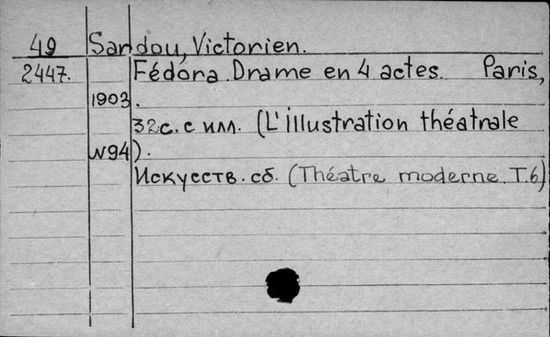 49 Sardou, Victorien.
2447. Fédora. Drame en 4 actes. Paris,
1903.
32с. с илл. (L'illustration théatrale
N94).
Искусств. сб. (Théatre moderne. T.6)